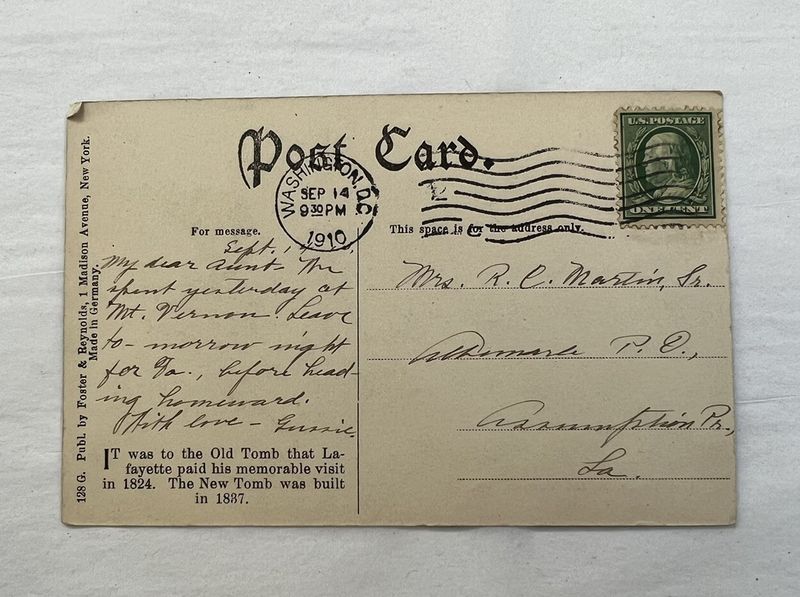 Post Card.
WASHINGTON, D.C.
SEP 14
9 30 PM
1910
U.S. POSTAGE
ONE CENT
For message.
This space is for the address only.
128 G. Publ. by Foster & Reynolds, 1 Madison Avenue, New York.
Made in Germany.
Sept.
My dear Aunt - We
spent yesterday at
Mt. Vernon. Leave
to-morrow night
for Va., before head-
ing homeward.
With love - Gussie.
IT was to the Old Tomb that La-
fayette paid his memorable visit
in 1824. The New Tomb was built
in 1837.
Mrs. R. C. Martin, Sr.
Albemarle P. O.,
Assumption Pr.,
La.